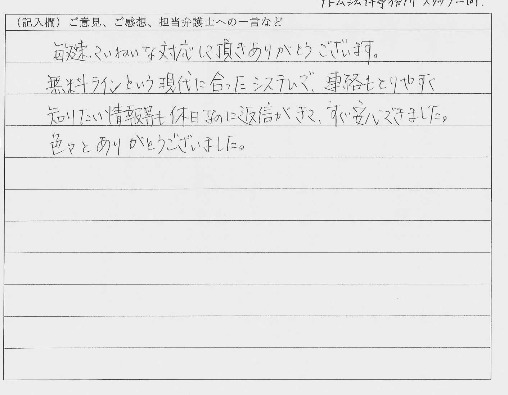 アトム法律事務所 スタッフ一同
(記入欄)ご意見、ご感想、担当弁護士への一言など
敏速、ていねいな対応して頂きありがとうございます。
無料ラインという現代に合ったシステムで、連絡もとりやすく
知りたい情報等も休日なのに返信がきて、すぐ安心できました。
色々とありがとうございました。